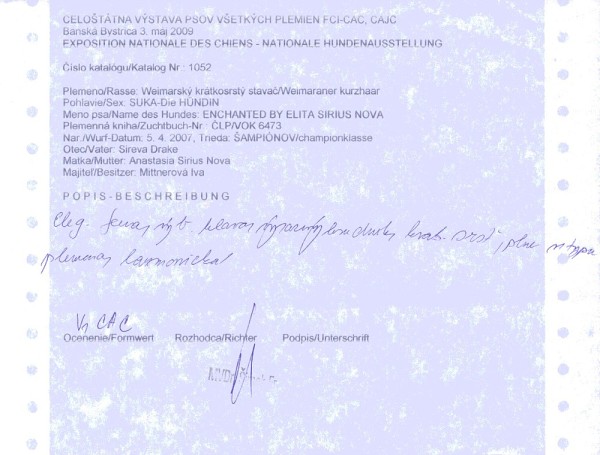 CELOŠTÁTNA VÝSTAVA PSOV VŠETKÝCH PLEMIEN FCI-CAC, CAJC
Banská Bystrica 3. máj 2009
EXPOSITION NATIONALE DES CHIENS - NATIONALE HUNDENAUSSTELLUNG
Číslo katalógu/Katalog Nr.: 1052
Plemeno/Rasse: Weimarský krátkosrstý stavač/Weimaraner kurzhaar
Pohlavie/Sex: SUKA-Die HÜNDIN
Meno psa/Name des Hundes: ENCHANTED BY ELITA SIRIUS NOVA
Plemenná kniha/Zuchtbuch-Nr.: ČLP/VOK 6473
Nar./Wurf-Datum: 5. 4. 2007, Trieda: ŠAMPIÓNOV/championklasse
Otec/Vater: Sireva Drake
Matka/Mutter: Anastasia Sirius Nova
Majiteľ/Besitzer: Mittnerová Iva
POPIS-BESCHREIBUNG
Eleg. výb. srsť, plne v type
plemena harmonická
V1 CAC
Ocenenie/Formwert Rozhodca/Richter Podpis/Unterschrift